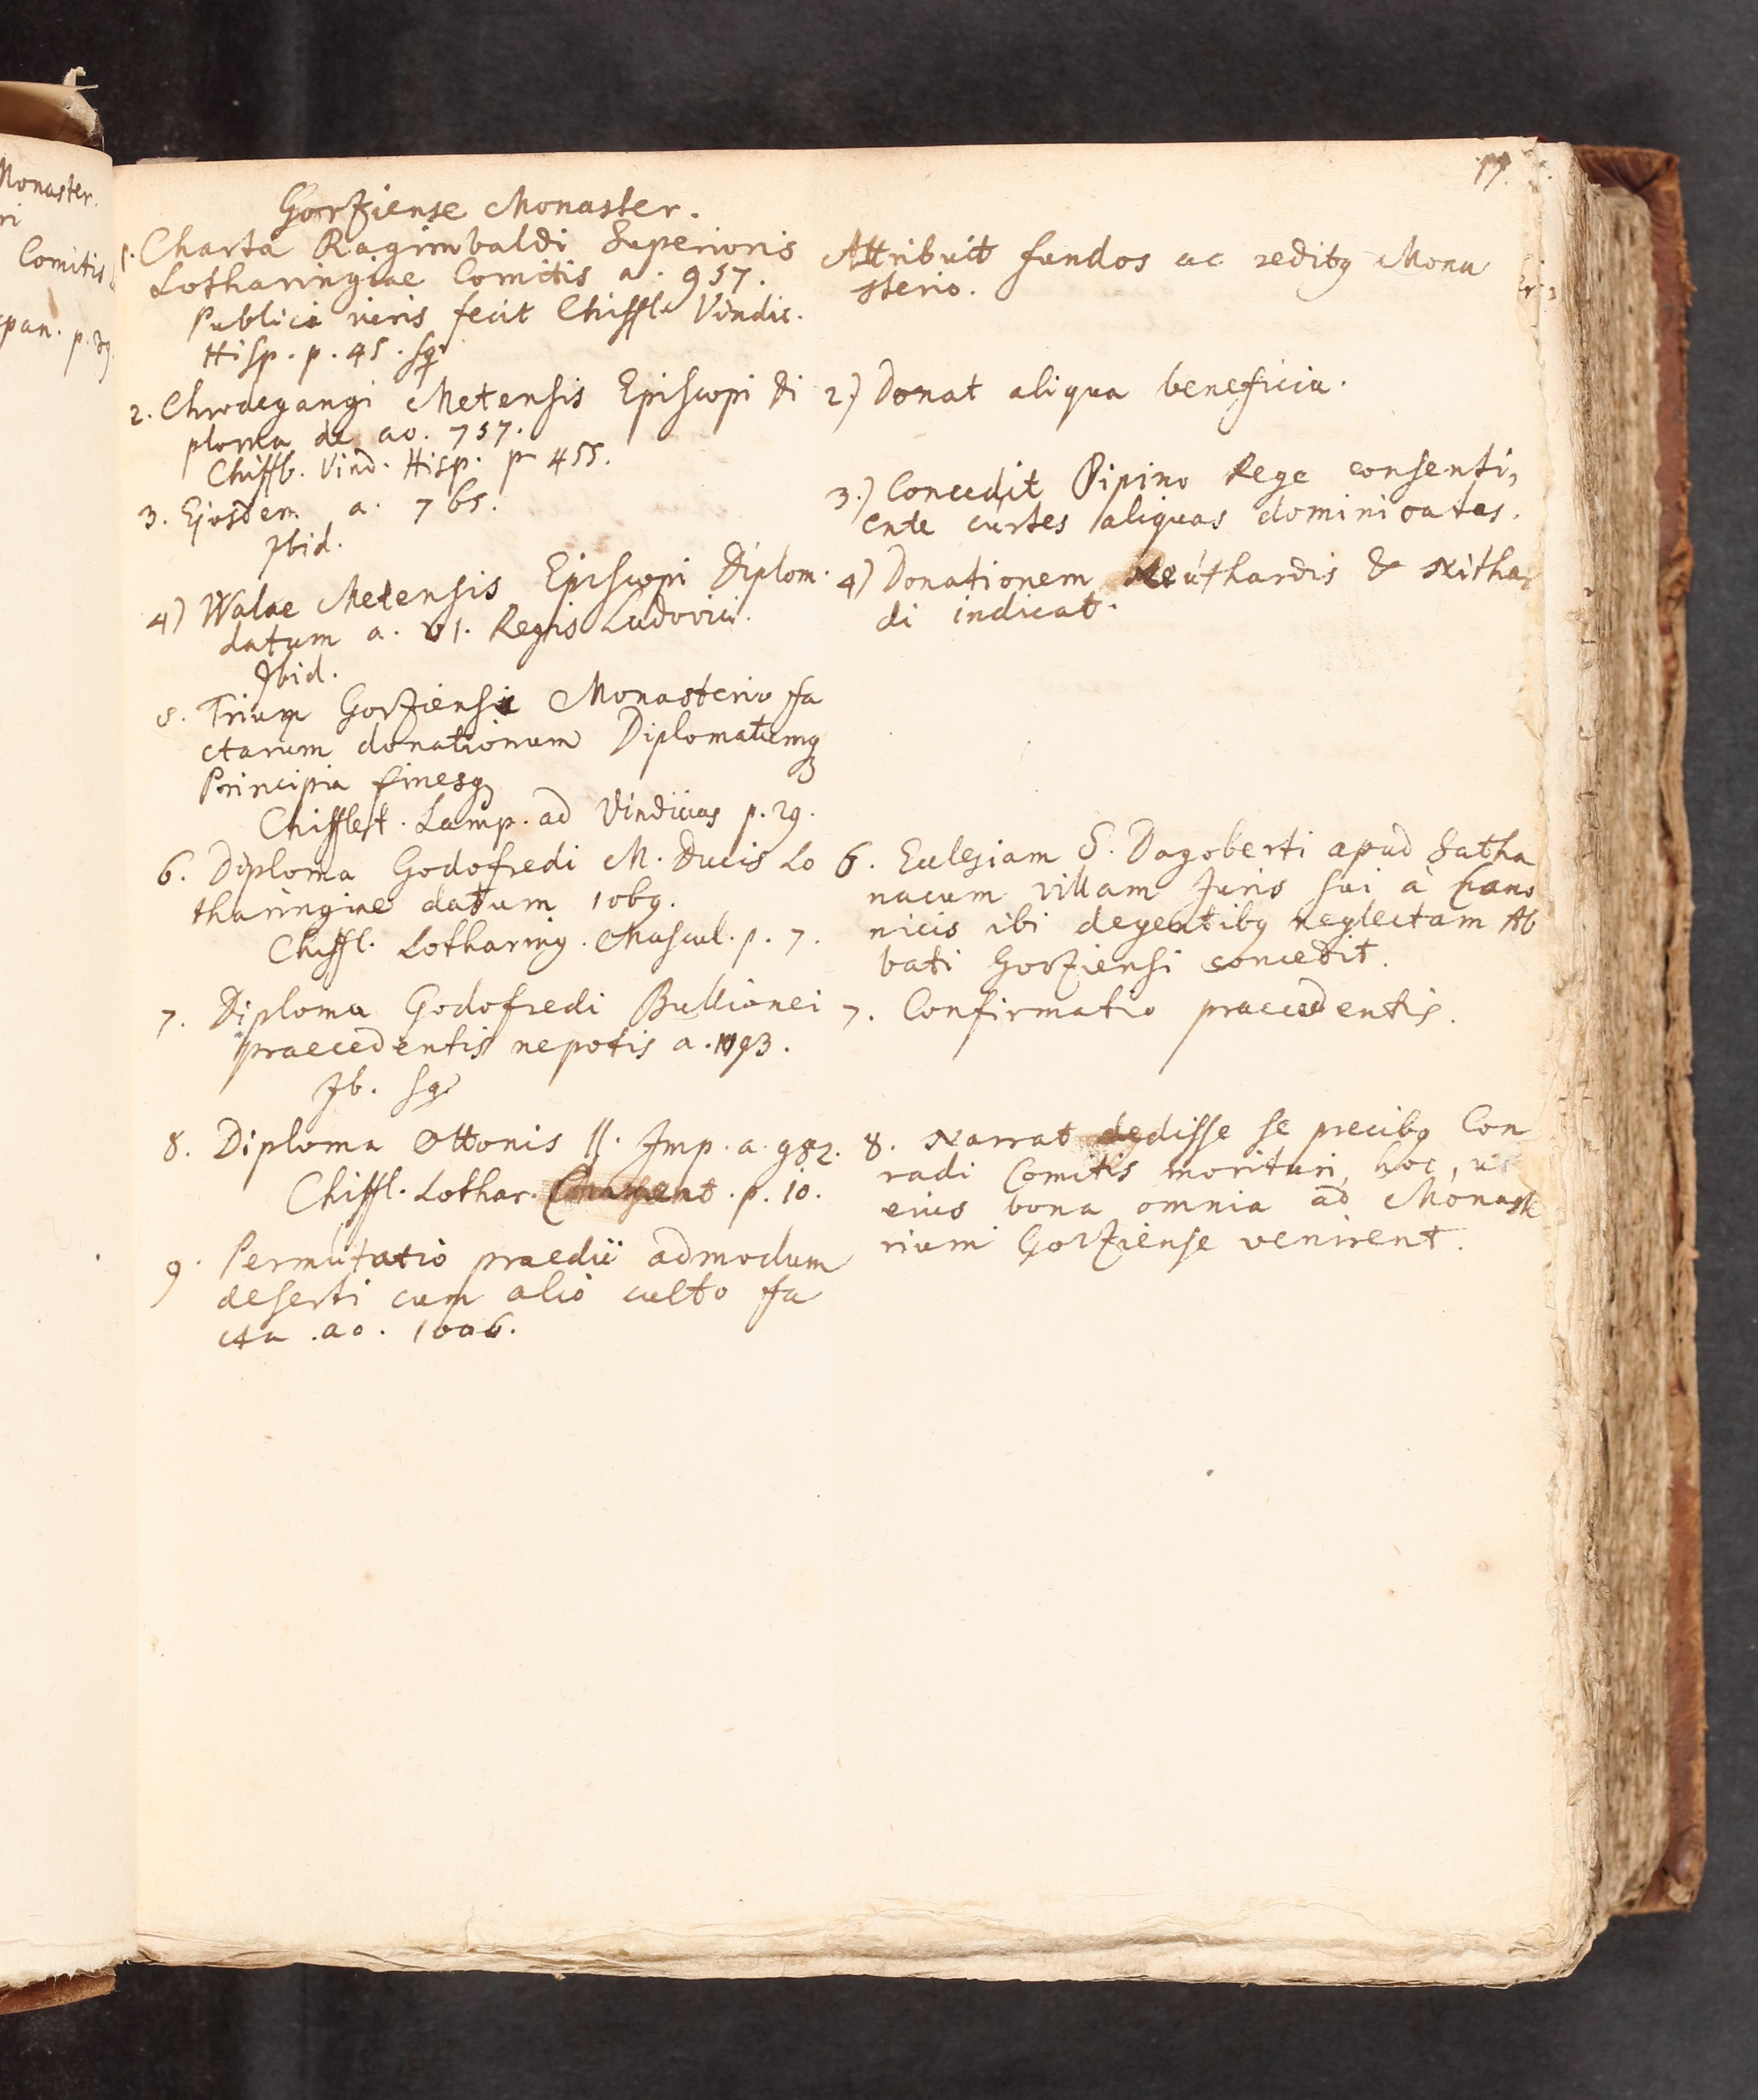 Gorziense Monaster.
1. Charta Ragimbaldi Superioris
Lotharingiae Comitis a. 957.
Publici fecit Chiffl. Vindic.
Hisp. p. 45. sq.
2. Chrodegangi Metensis Episcopi di
ploma de ao. 757.
Chiffl. Vind. Hisp. p 455.
3. Ejusdem a. 765.
Ibid.
4) Walae Metensis Episcopi Diplom.
datum a. VI. Regis Ludovici.
Ibid.
5. Trium Gorziensi Monasterio fa
ctarum donationum Diplomatumq
Principia finesq
Chifflet. Lamp. ad Vindicias p. 29.
6. Diploma Godofredi M. Ducis Lo
tharingiae datum 1069.
Chiffl. Lotharing. Mascul. p. 7.
7. Diploma Godofredi Bullionei
praecedentis nepotis a. 1093.
Ib. sq
8. Diploma Ottonis II. Imp. a. 982.
Chiffl. Lothar. p. 10.
9. Permutatio praedii admodum
deserti cum alio culto fa
cta ao. 1006.
Attribuit fundos ac reditq Mona
sterio.
2.) Donat aliqua beneficia.
3.) Concedit Pipino Rege consenti,
ente curtes aliquas dominicatas.
4) Donationem &
di indicat.
6. Eclesiam S. Dagoberti apud Satha
nacum villam Juris sui à Cano
nicis ibi degentibq neglectam Ab
bati Gorziensi concedit.
7. Confirmatio praecedentis.
8. Narrat dedisse se precibq Con
radi Comitis morituri hoc, ut
eius bona omnia ad Monaste
rium Gorziense venirent.
Monaster.
ri
Comitis
span. p. 29.